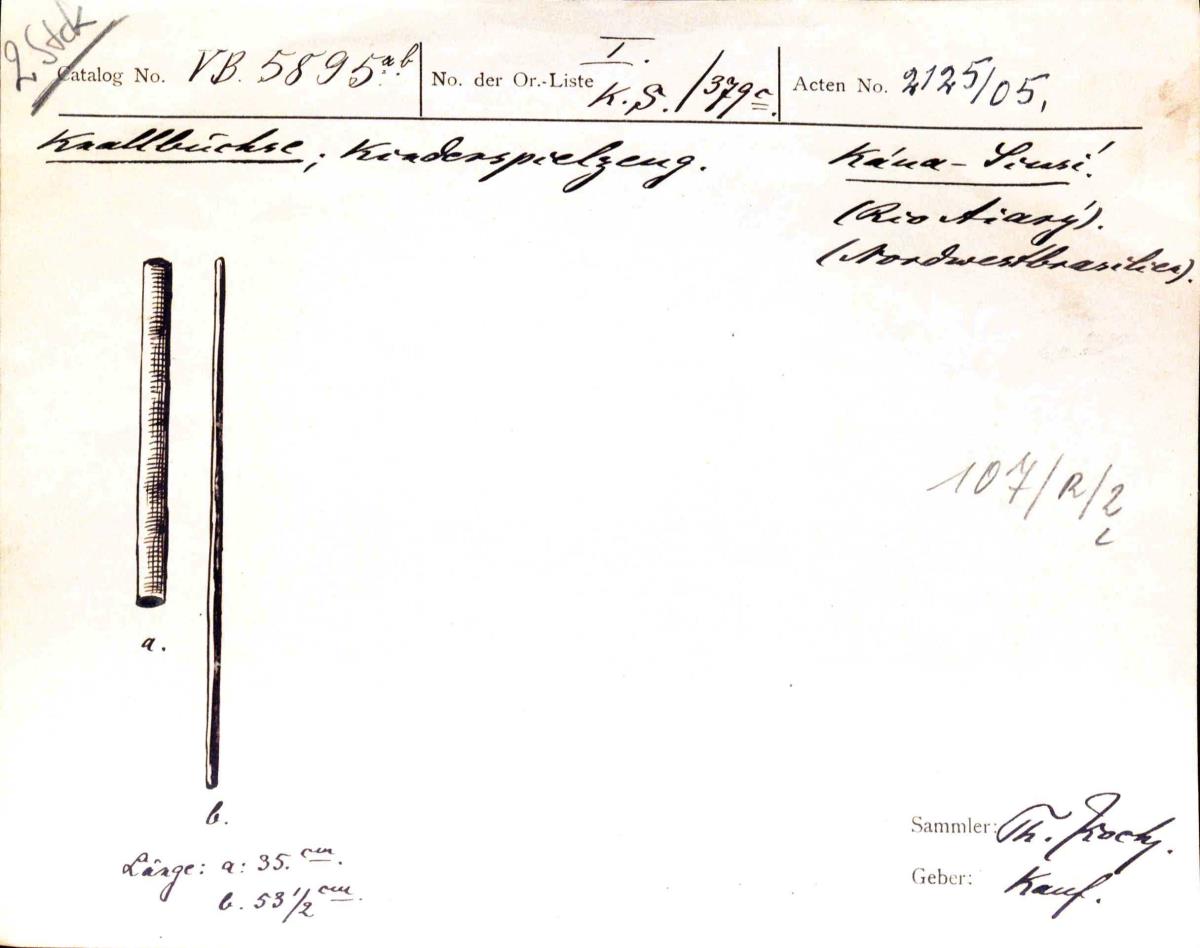 2 Stck
Catalog No. VB. 5895 a.b
No. der Or.-Liste I. K. S./379 c.
Acten No. 2125/05.
Knallbüchse; Kinderspielzeug.
Káua-Siusí!
(Rio Aiarý).
(Nordwestbrasilien).
107/R/2
a.
b.
Länge: a: 35. cm.
b. 53 1/2 cm.
Sammler: Th. Koch.
Geber: Kauf.